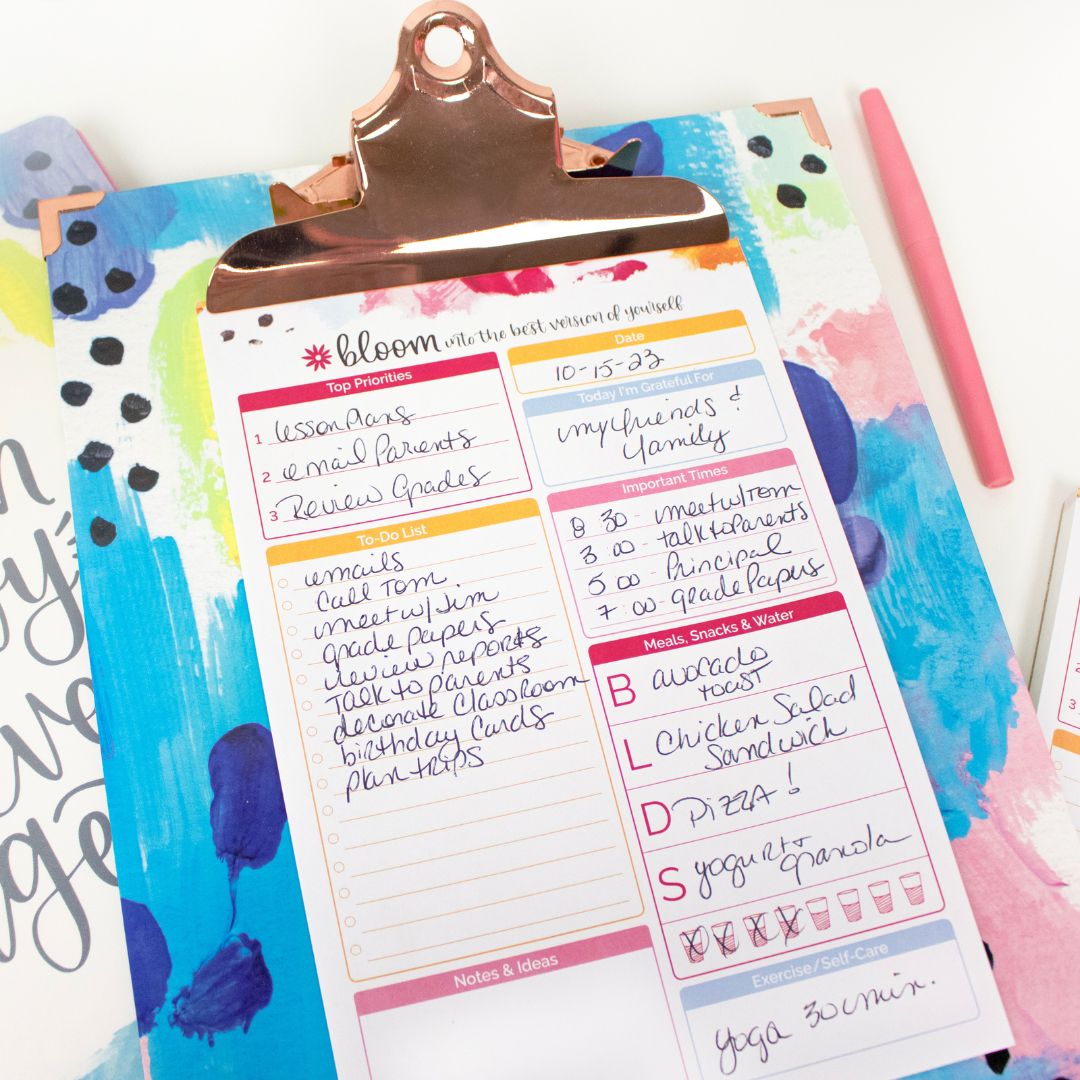 bloom into the best version of yourself
Top Priorities
1 lesson Plans
2 email Parents
3 Review Grades
Date
10-15-23
Today I'm Grateful For
my friends &
family
Important Times
8 30 - meet w/ Tom
3 :00 - talk to parents
5 00 - Principal
7 :00 - grade Papers
To-Do List
emails
Call Tom.
meet w/ Jim
grade papers
review reports
Talk to parents
decorate classroom
birthday cards
plan trips
Meals, Snacks & Water
B avocado
toast
L Chicken Salad
Sandwich
D Pizza!
S yogurt +
granola
Notes & Ideas
Exercise/Self-Care
Yoga 30 min.
3